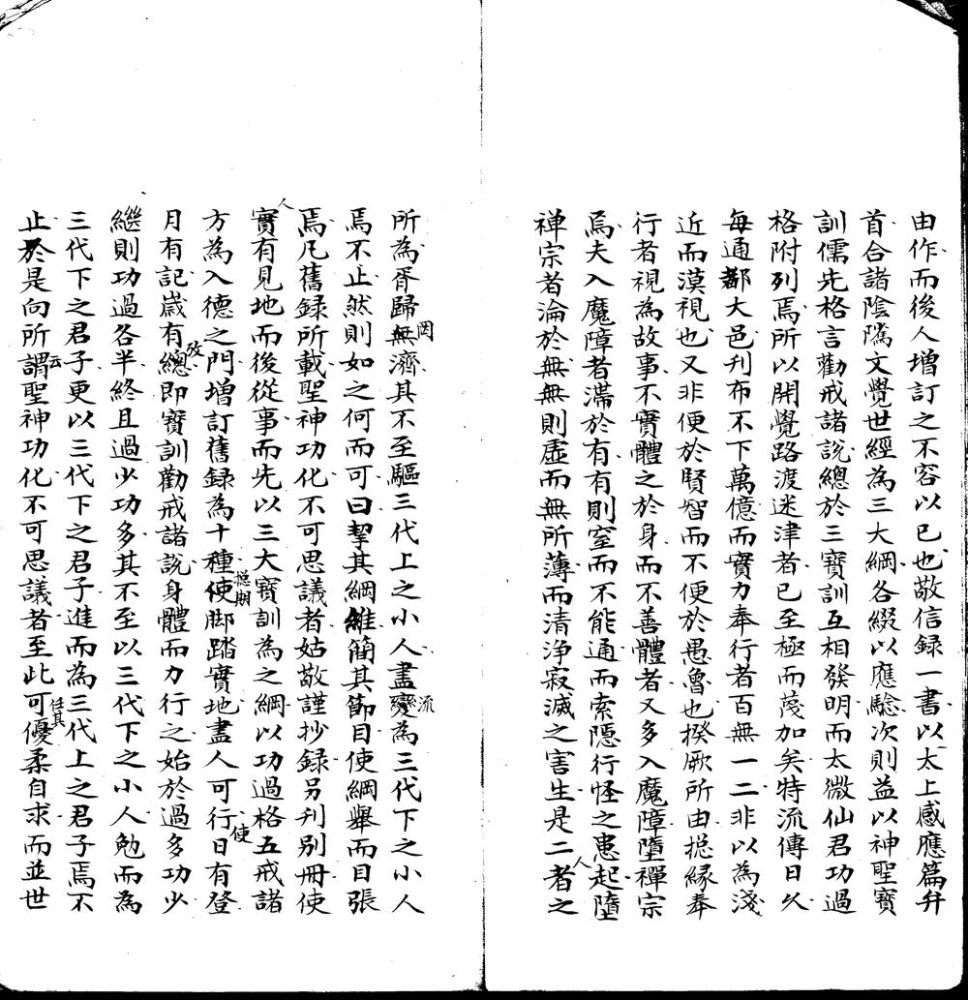 由作而後人增訂之不容以已也敬信録一書以太上感應篇弁
首合諸陰隲文覺世經為三大綱各綴以應驗次則益以神聖寶
訓儒先格言勸戒諸說總於三寶訓互相發明而太微仙君功過
格附列焉所以開覺路渡迷津者已至極而蔑加矣特流傳日久
每通都大邑刊布不下萬億而實力奉行者百無一二非以為淺
近而漠視也又非便於賢智而不便於愚魯也揆厥所由揔緣奉
行者視為故事不實體之於身而不善體者又多入魔障墮禪宗
焉夫入魔障者滯於有有則窒而不能通而索隱行怪之患起墮
人
禅宗者淪於無無則虛而無所薄而清浄寂滅之害生是二者之
所為胥歸無濟其不至驅三代上之小人盡變為三代下之小人
罔
流
焉不止然則如之何而可曰挈其綱維簡其節目使綱舉而目張
焉凡舊録所載聖神功化不可思議者姑敬謹抄録另刋別冊使
人
實有見地而後從事而先以三大寶訓為之綱以功過格五戒諸
方為入德之門增訂舊録為十種使脚踏實地盡人可行日有登
揔期
使
月有記歲有總即寶訓勸戒諸說身體而力行之始於過多功少
攷
繼則功過各半終且過少功多其不至以三代下之小人勉而為
三代下之君子更以三代下之君子進而為三代上之君子焉不
止於是向所謂聖神功化不可思議者至此可優柔自求而並世
云
任其